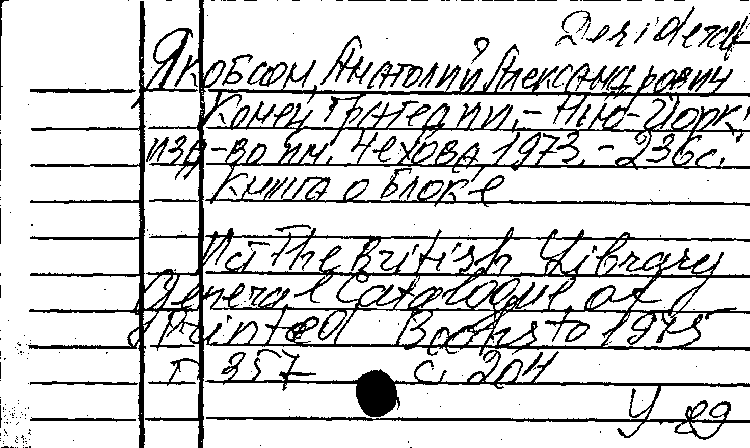 Desiderat
Якобсон, Анатолий Александрович
Конец трагедии. - Нью-Йорк:
изд-во им. Чехова, 1973. - 236 с.
Книга о Блоке
Ист The British Library
General Catalogue of
Printed Books to 1975
т 357 с. 204
У. 89